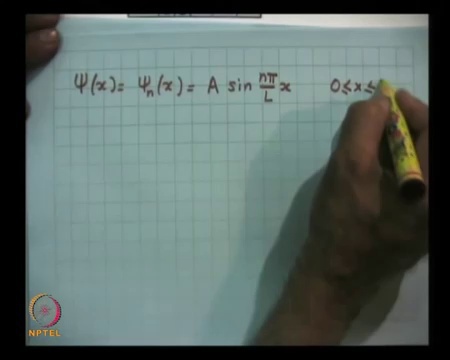 Ψ(x) = Ψₙ(x) = A sin nπ/L x 0≤x≤
NPTEL